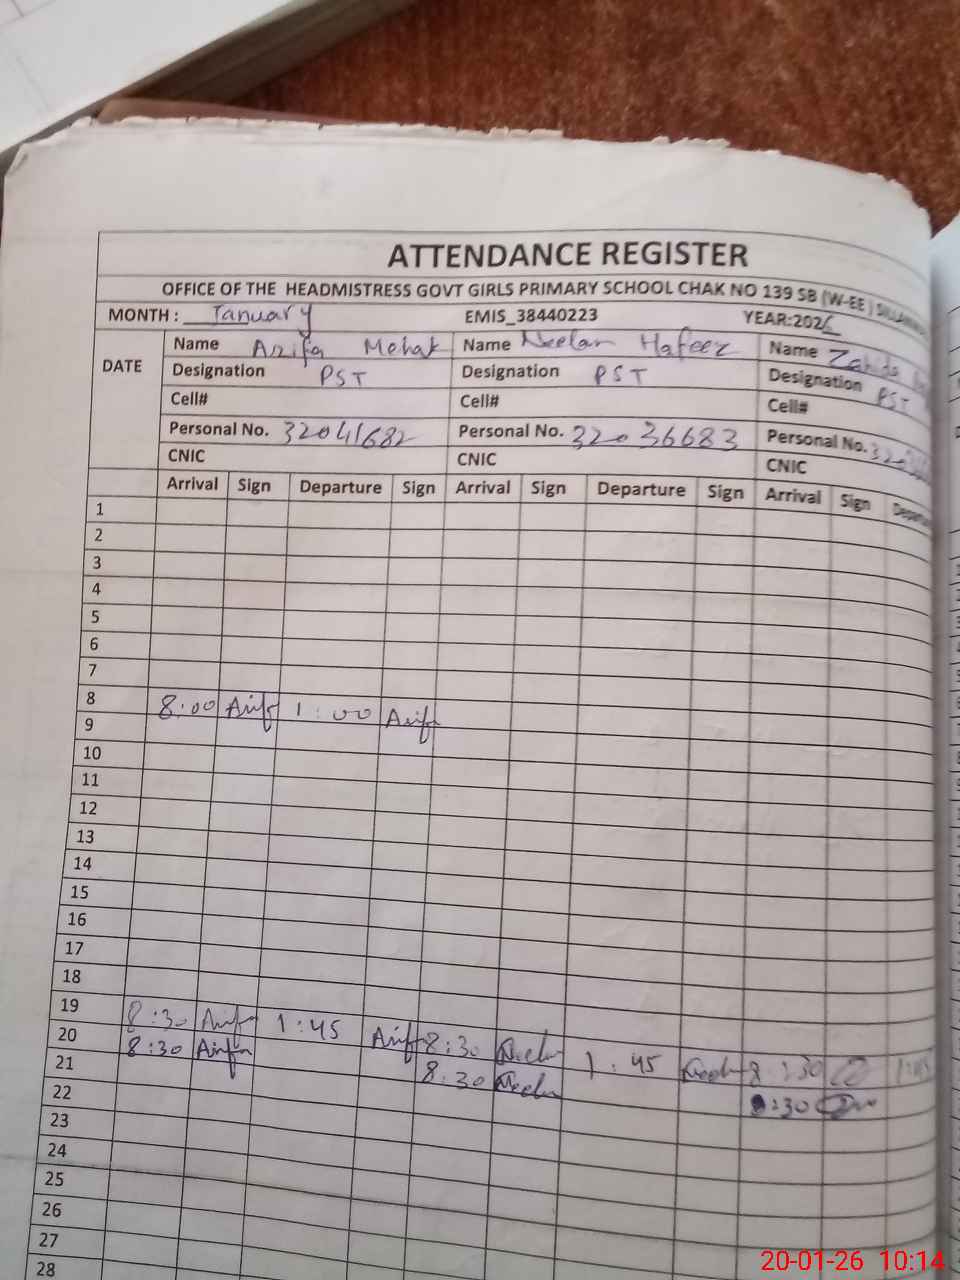 ATTENDANCE REGISTER
OFFICE OF THE HEADMISTRESS GOVT GIRLS PRIMARY SCHOOL CHAK NO 139 SB (W-EE)
MONTH : January EMIS_38440223 YEAR:2026
DATE Name Arifa Mehak Name Neelam Hafeez Name Zahida
Designation PST Designation PST Designation PST
Cell# Cell# Cell#
Personal No. 32041682 Personal No. 32036683 Personal No.
CNIC CNIC CNIC
Arrival Sign Departure Sign Arrival Sign Departure Sign Arrival Sign
1
2
3
4
5
6
7
8 8:00 Arifa 1:00 Arifa
9
10
11
12
13
14
15
16
17
18
19 8:30 Arifa 1:45 Arifa 8:30 Neelam 1:45 Neelam 8:30 1:45
20 8:30 Arifa 8:30 Neelam 8:30
21
22
23
24
25
26
27
28
20-01-26 10:14